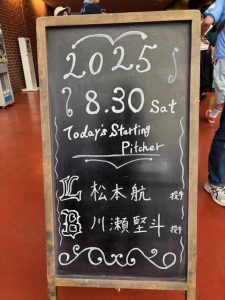 2025
8.30 Sat
Today's Starting
Pitcher
L 松本航 投手
B 川瀬堅斗 投手